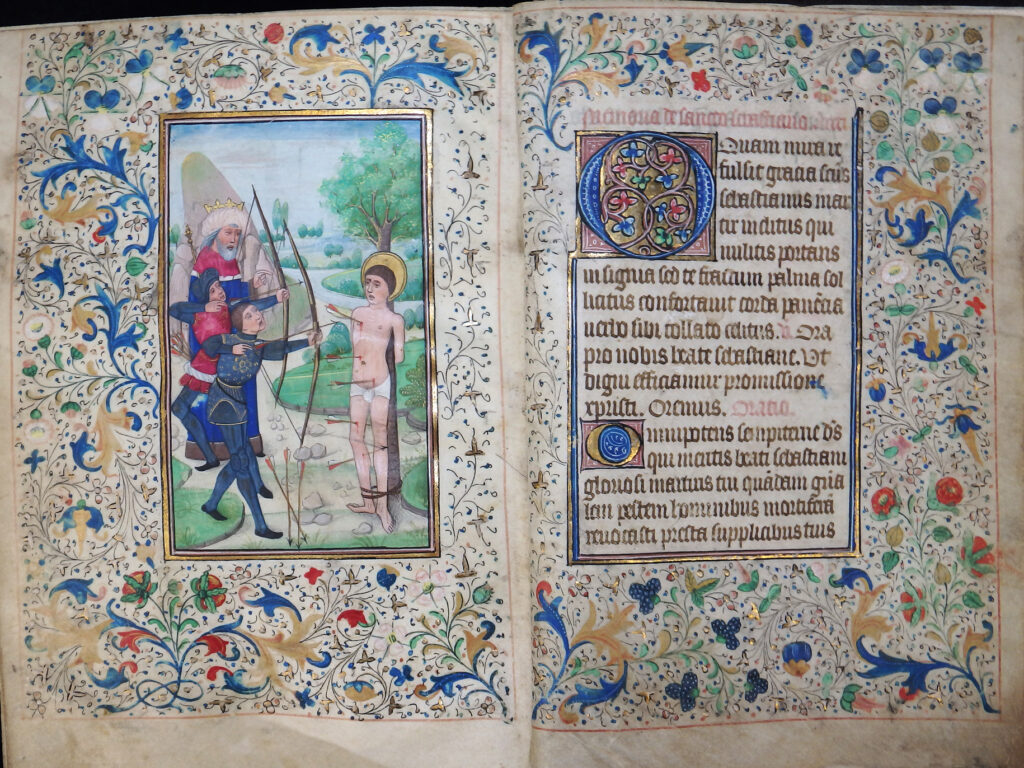 Memoria de sancto sebastiano
O Quam mira re
fulsit gracia scūs
sebastianus mar
tir inclitus qui
militis portans
insignia sed de fratrum palma sol
licitus confortauit corda panc̄ia
uerbo sibi collato celitus. Ora
pro nobis beate sebastiane. Vt
digni efficiamur promissione
xpristi. Oremus. Oratio.
Omnipotens sempiterne d̄s
qui meritis beati sebastiani
gloriosi martiris tui quādam gn̄a
lem pestem hominibus mortiferā
reuocasti presta supplicibus tuis